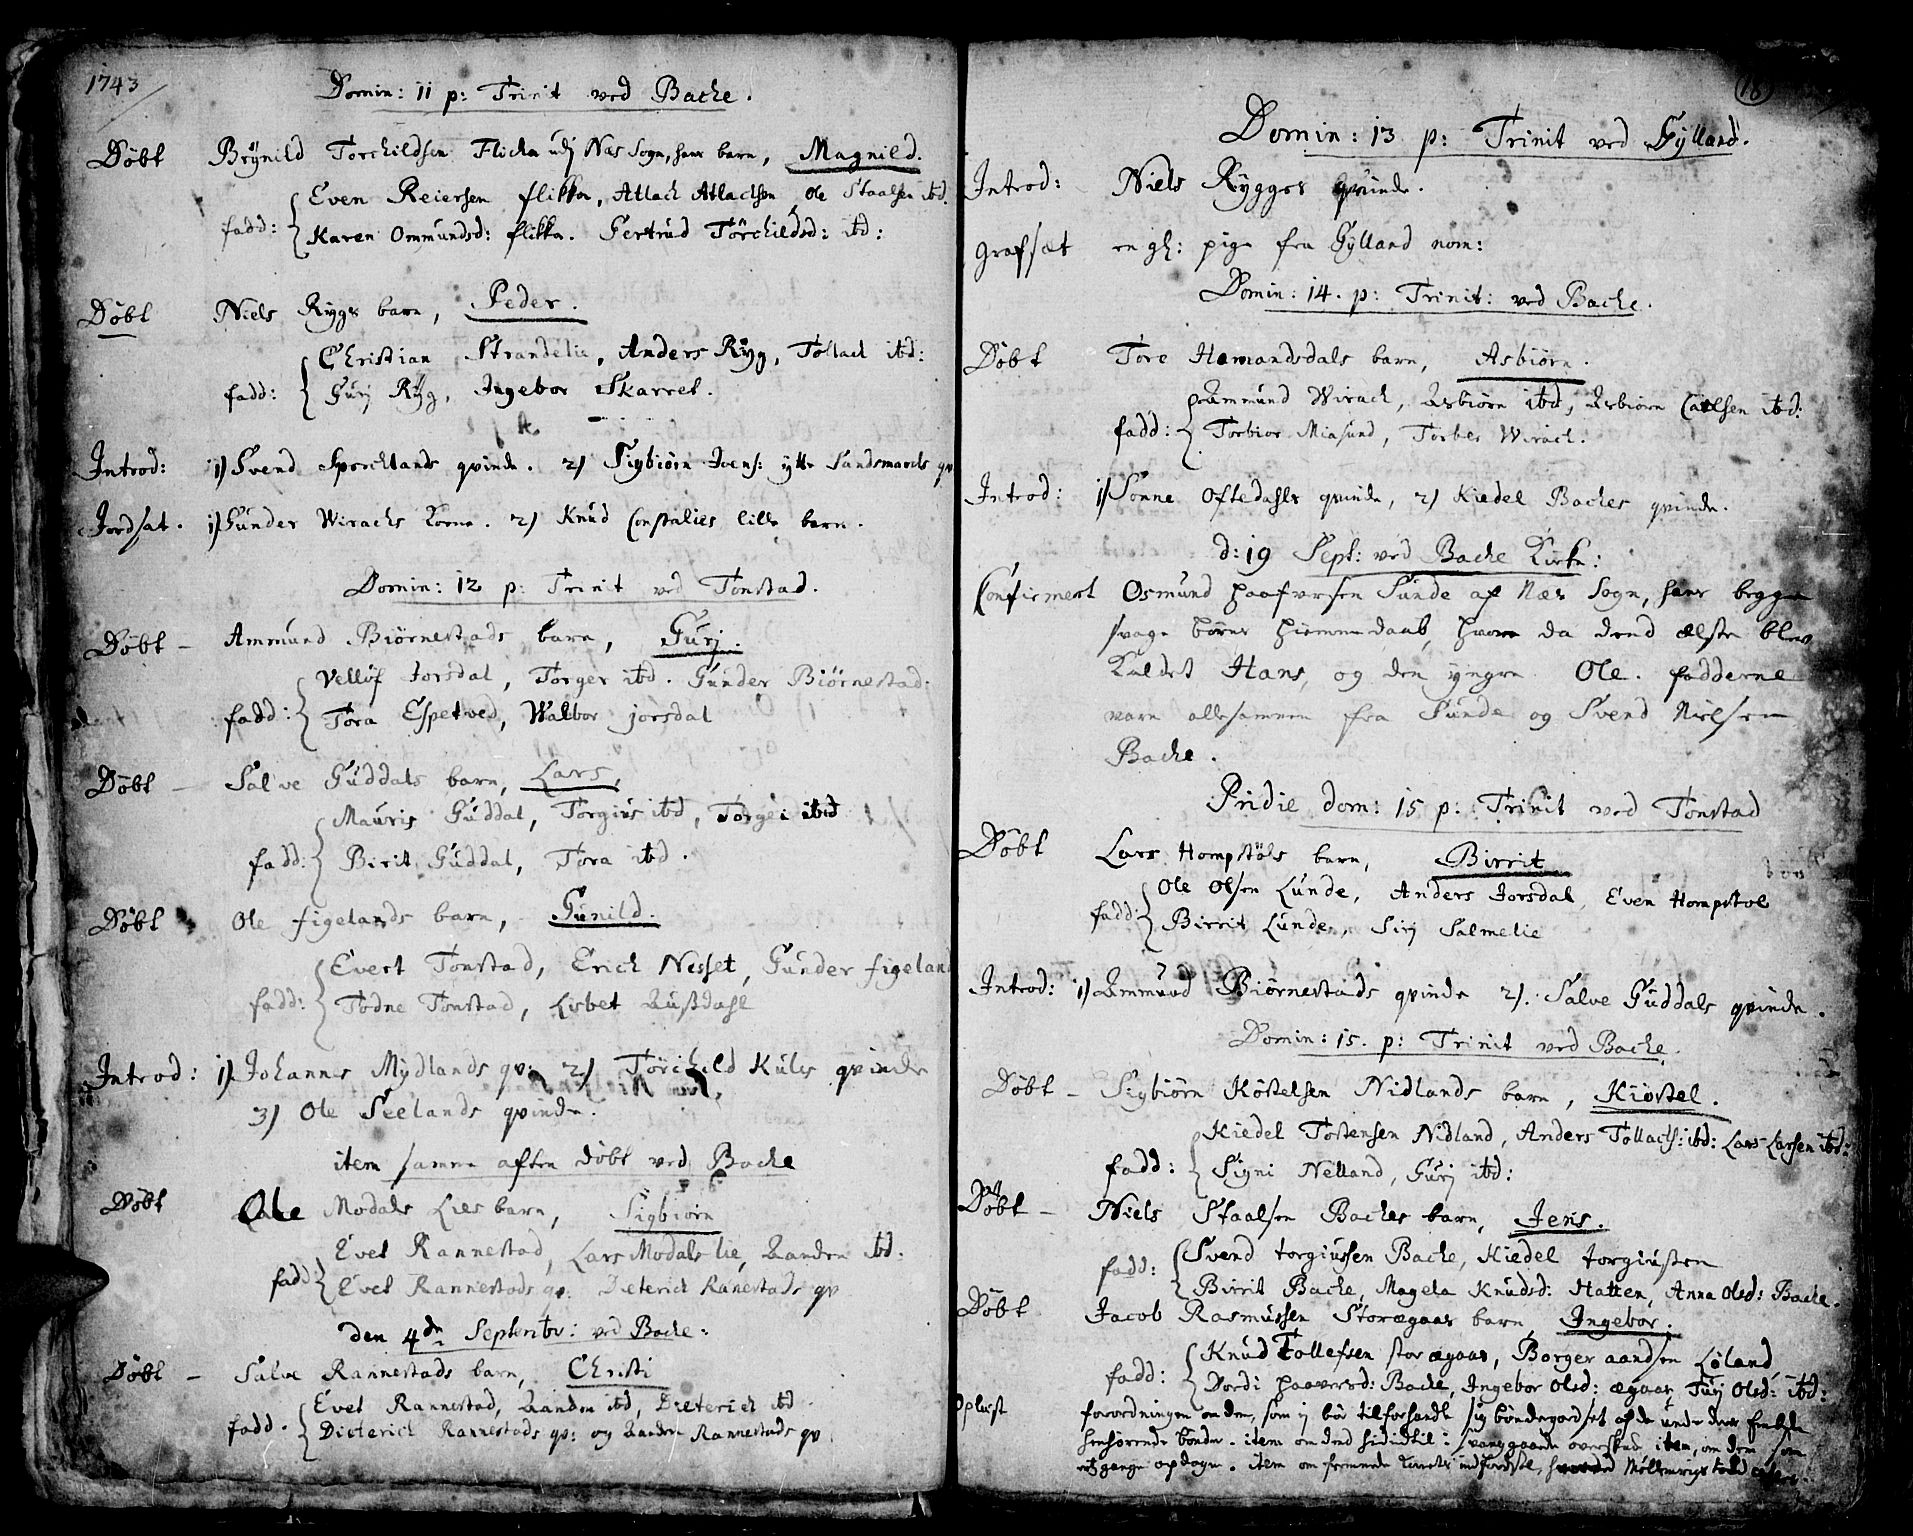 1743
Domin: 11 p: Trinit ved Bache.
Döbt Brÿnild Torchildsen Flicka udj Næs Sogn, hans barn, Magnild.
fadd: Even Reiersen flikka, Atlach Atlachsen, Ole Staalsen ibd.
Karen Ommundsd: flikka. Gertrud Törchildsd: ibd:
Döbt Niels Rygs barn, Peder.
fadd: Christian Strandelie, Anders Rÿg, Tollach ibd:
Gurj Rÿg, Ingebor Skarret.
Introd: 1) Svend Sporcklands qvinde. 2) Sigbiörn Joens: ytte Sandsmarks qv
Jordsat. 1) Gunder Wirachs Kone. 2) Knud Constalies lille barn.
Domin: 12 p: Trinit ved Tonstad.
Döbt - Ammund Biörnestads barn, Gurj.
fadd: Velluf Josdal, Törger ibd. Gunder Biörnestad.
Tora Espetved, Walbor josdal
Döbt - Salve Guddals barn, Lars.
fadd: Mauris Guddal, Torgius ibd, Torgei ibid
Birit Guddal, Tora ibd.
Döbt Ole figelands barn, Gunild.
fadd: Evert Tonstad, Erich Nesset, Gunder figeland
Todne Tonstad, Lisbet Aussdahl
Introd: 1) Johannes Mydlands qv: 2) Törchild Kules qvinde
3) Ole Seelands qvinde.
item samme aften döbt ved Bache
Döbt Ole Modals Lies barn, Sigbiörn
fadd: Evet Rannestad, Lars Modalslie, Aanden ibd.
Evet Rannestads qv: Dieterich Ranestads qv
den 4de Septembr: ved Bache.
Döbt - Salve Rannestads barn, Christi
fadd. Evet Rannestad, Aanden ibd, Dieterich ibd
Dieterich Rannestads qv: og Aanden Rannestads qv.
18
Domin: 13 p: Trinit ved Gylland.
Introd: Niels Rygges qvinde.
grafsæt en gl: pige fra Gylland nom:
Domin: 14. p: Trinit: ved Bache.
Döbt Tore Hamandsdals barn, Asbiörn.
fadd: Aammund Wirach, Asbiörn ibd, Asbiörn Carlsen ibd:
Torbior Miasund, Torber Wirach.
Introd: 1) Tönne Oftedahls qvinde, 2) Kiedel Baches qvinde.
d: 19 Sept: ved Bache Kirke:
Confirmert Osmund Paafvesen Sunde af Næs Sogn, hans begge
svage börns hiemmedaab, hvor da dend ælste blev
Kaldet Hans, og den yngre Ole. fadderne
vare allesammen fra Sunde og Svend Nielsen
Bache.
Pridie dom: 15 p: Trinit ved Tonstad
Döbt Lars Hompstöls barn, Birrit
fadd: Ole Olsen Lunde, Anders Josdal, Even Hompstol
Birrit Lunde, Sirj Salmelie
Introd: 1) Ammund Biörnestads qvinde 2). Salve Guddals qvinde.
Domin: 15. p: Trinit ved Bache.
Döbt - Sigbiörn Köstelsen Nidlands barn, Kiöstel.
fadd: Kiedel Tostensen Nidland, Anders Tollachs: ibd: Lars Larsen ibd:
Signi Nelland, Gurj ibd:
Döbt - Niels Staalsen Baches barn, Jens.
fadd: Svend torgiussen Bache, Kiedel torgiussen
Birrit Bache, Magela Knudsd: Hatten, Anna Olsd: Bache.
Döbt Jacob Rasmussen Storægaas barn, Ingebor.
fadd: Knud Tollefsen storægaas, Borger aandsen Löland,
Dordi Paaversd: Bache, Ingebor Olsd: ægaas, Turj Olsd: ibd:
Oplæst forordningen om dem, som ej bör tilforhandle sig böndegodset af de under deres Embede
henhörende bönder. item om dend hidindtil: svangaaende overskud, item, om dem som
item om fremmede